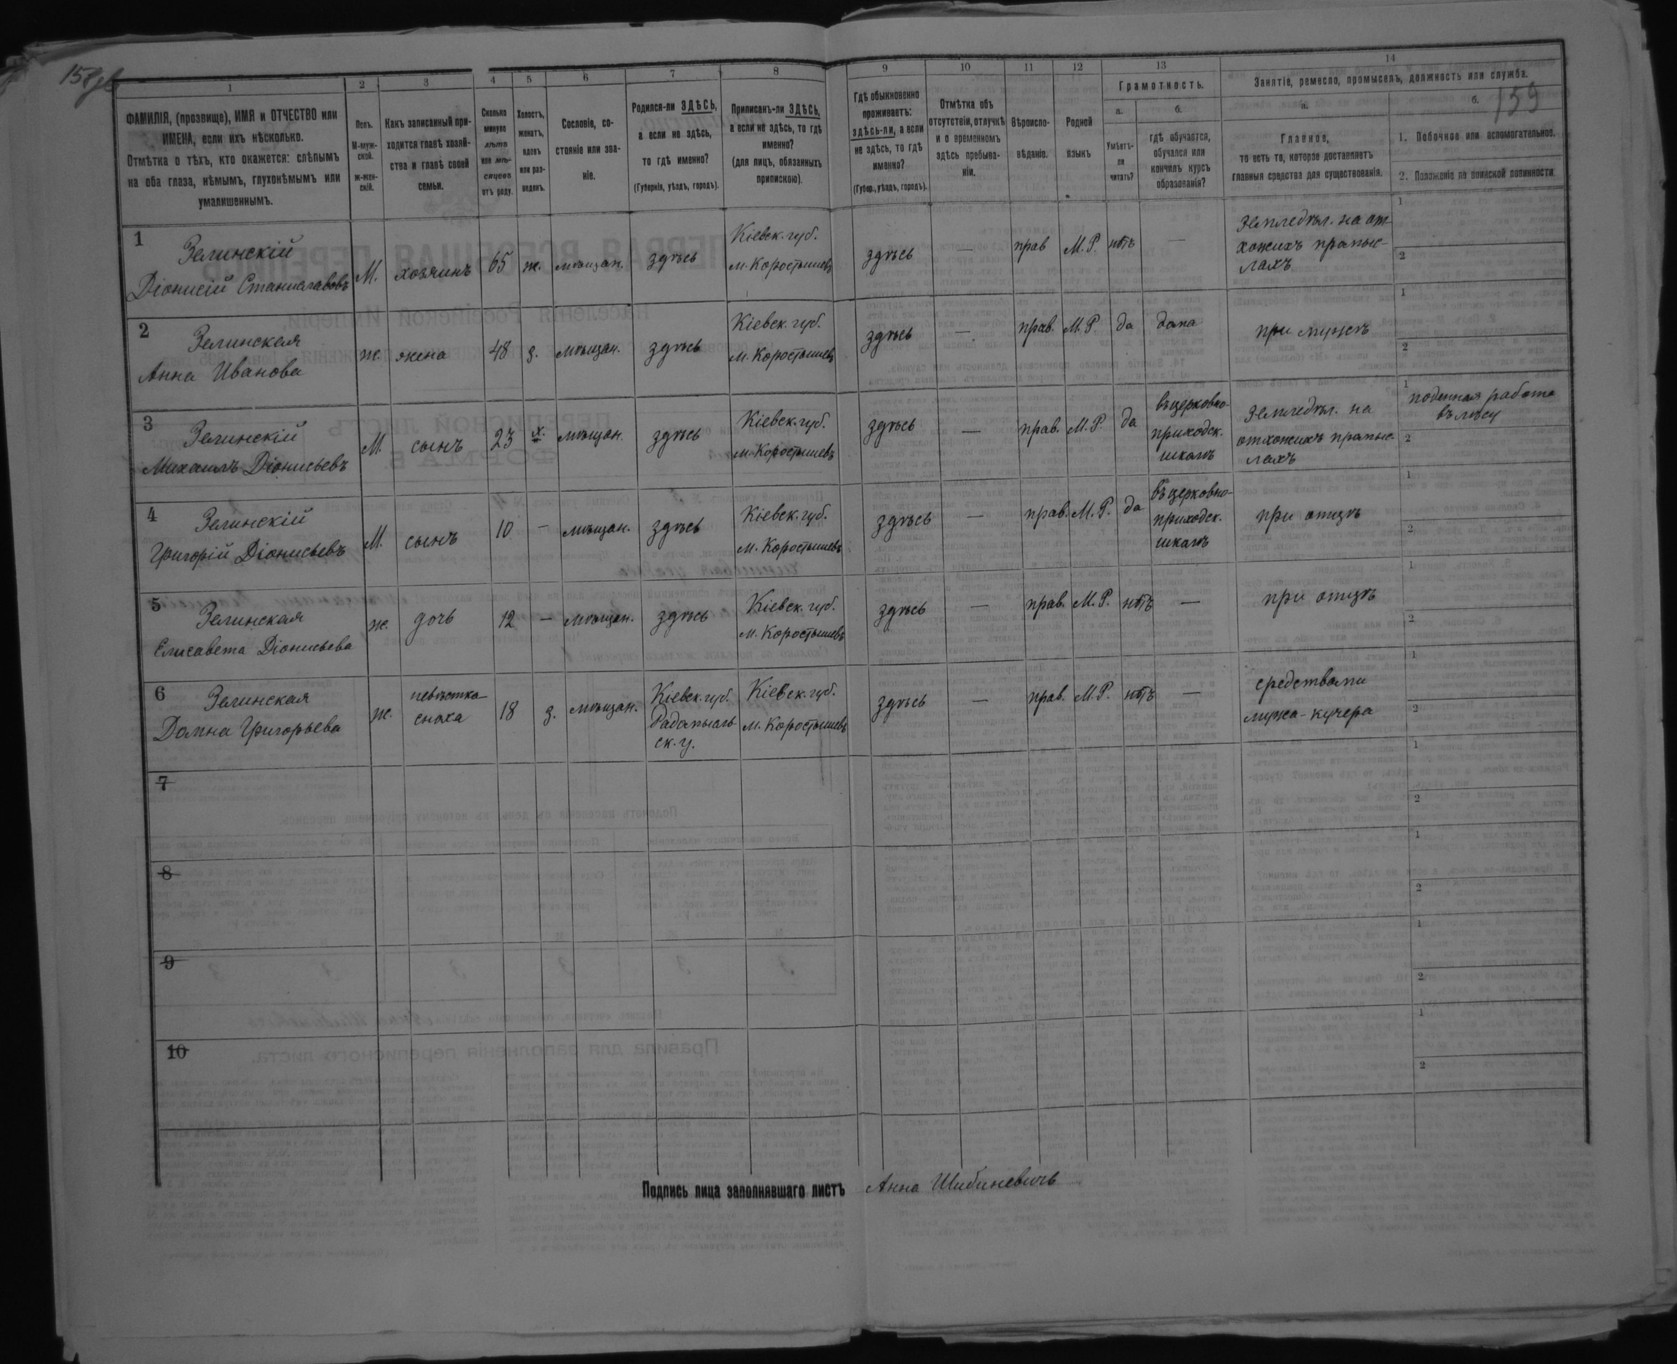 158об
159
1
2
3
4
5
6
7
8
9
10
11
12
13
14
ФАМИЛІЯ, (прозвище), ИМЯ и ОТЧЕСТВО или
ИМЕНА, если ихъ нѣсколько.
Отмѣтка о тѣхъ, кто окажется: слѣпымъ
на оба глаза, нѣмымъ, глухонѣмымъ или
умалишеннымъ.
Полъ.
М-муж-
ской.
ж-жен-
скій.
Какъ записанный при-
ходится главѣ хозяй-
ства и главѣ своей
семьи.
Сколько
минуло
лѣтъ
или мѣ-
сяцевъ
отъ роду.
Холостъ,
женатъ,
вдовъ
или раз-
веденъ.
Сословіе, со-
стояніе или зва-
ніе.
Родился-ли ЗДѢСЬ,
а если не здѣсь,
то гдѣ именно?
(Губернія, уѣздъ, городъ).
Приписанъ-ли ЗДѢСЬ,
а если не здѣсь, то гдѣ
именно?
(для лицъ, обязанныхъ
припискою).
Гдѣ обыкновенно
проживаетъ:
здѣсь-ли, а если
не здѣсь, то гдѣ
именно?
(Губер., уѣздъ, городъ).
Отмѣтка объ
отсутствіи, отлучкѣ
и о временномъ
здѣсь пребыва-
ніи.
Вѣроиспо-
вѣданіе.
Родной
языкъ
Грамотность.
а.
Умѣетъ-
ли
читать?
б.
гдѣ обучается,
обучался или
кончилъ курсъ
образованія?
Занятіе, ремесло, промыселъ, должность или служба.
а.
Главное,
то есть то, которое доставляетъ
главныя средства для существованія.
б.
1. Побочное или вспомогательное.
2. Положеніе по воинской повинности
1 Зелинскій
Діонисій Станиславовъ
М. хозяинъ 65 ж. мѣщан. здѣсь
Кіевск. губ.
м. Коростышевъ
здѣсь — прав М.Р. нѣтъ —
Земледѣл. на от-
хожихъ промыс-
лахъ
1
2
2 Зелинская
Анна Иванова
ж. жена 48 з. мѣщан. здѣсь
Кіевск. губ.
м. Коростышевъ
здѣсь — прав. М.Р. да дома
при мужѣ
1
2
3 Зелинскій
Михаилъ Діонисьевъ
М. сынъ 23 х. мѣщан. здѣсь
Кіевск. губ.
м. Коростышевъ
здѣсь — прав. М.Р. да
въ церковно-
приходск.
школѣ
Земледѣл. на
отхожихъ промыс-
лахъ
1 поденная работа
въ лѣсу
2
4 Зелинскій
Григорій Діонисьевъ
М. сынъ 10 — мѣщан. здѣсь
Кіевск. губ.
м. Коростышевъ
здѣсь — прав. М.Р. да
въ церковно-
приходск.
школѣ
при отцѣ
1
2
5 Зелинская
Елисавета Діонисьева
ж. дочь 12 — мѣщан. здѣсь
Кіевск. губ.
м. Коростышевъ
здѣсь — прав. М.Р. нѣтъ —
при отцѣ
1
2
6 Зелинская
Домна Григорьева
ж. невѣстка-
сноха
18 з. мѣщан.
Кіевск. губ.
Радомысль-
ск. у.
Кіевск. губ.
м. Коростышевъ
здѣсь — прав. М.Р. нѣтъ —
средствами
мужа-кучера
1
2
7
1
2
8
1
2
9
1
2
10
1
2
Подпись лица заполнявшаго листъ Анна Шибиневичъ